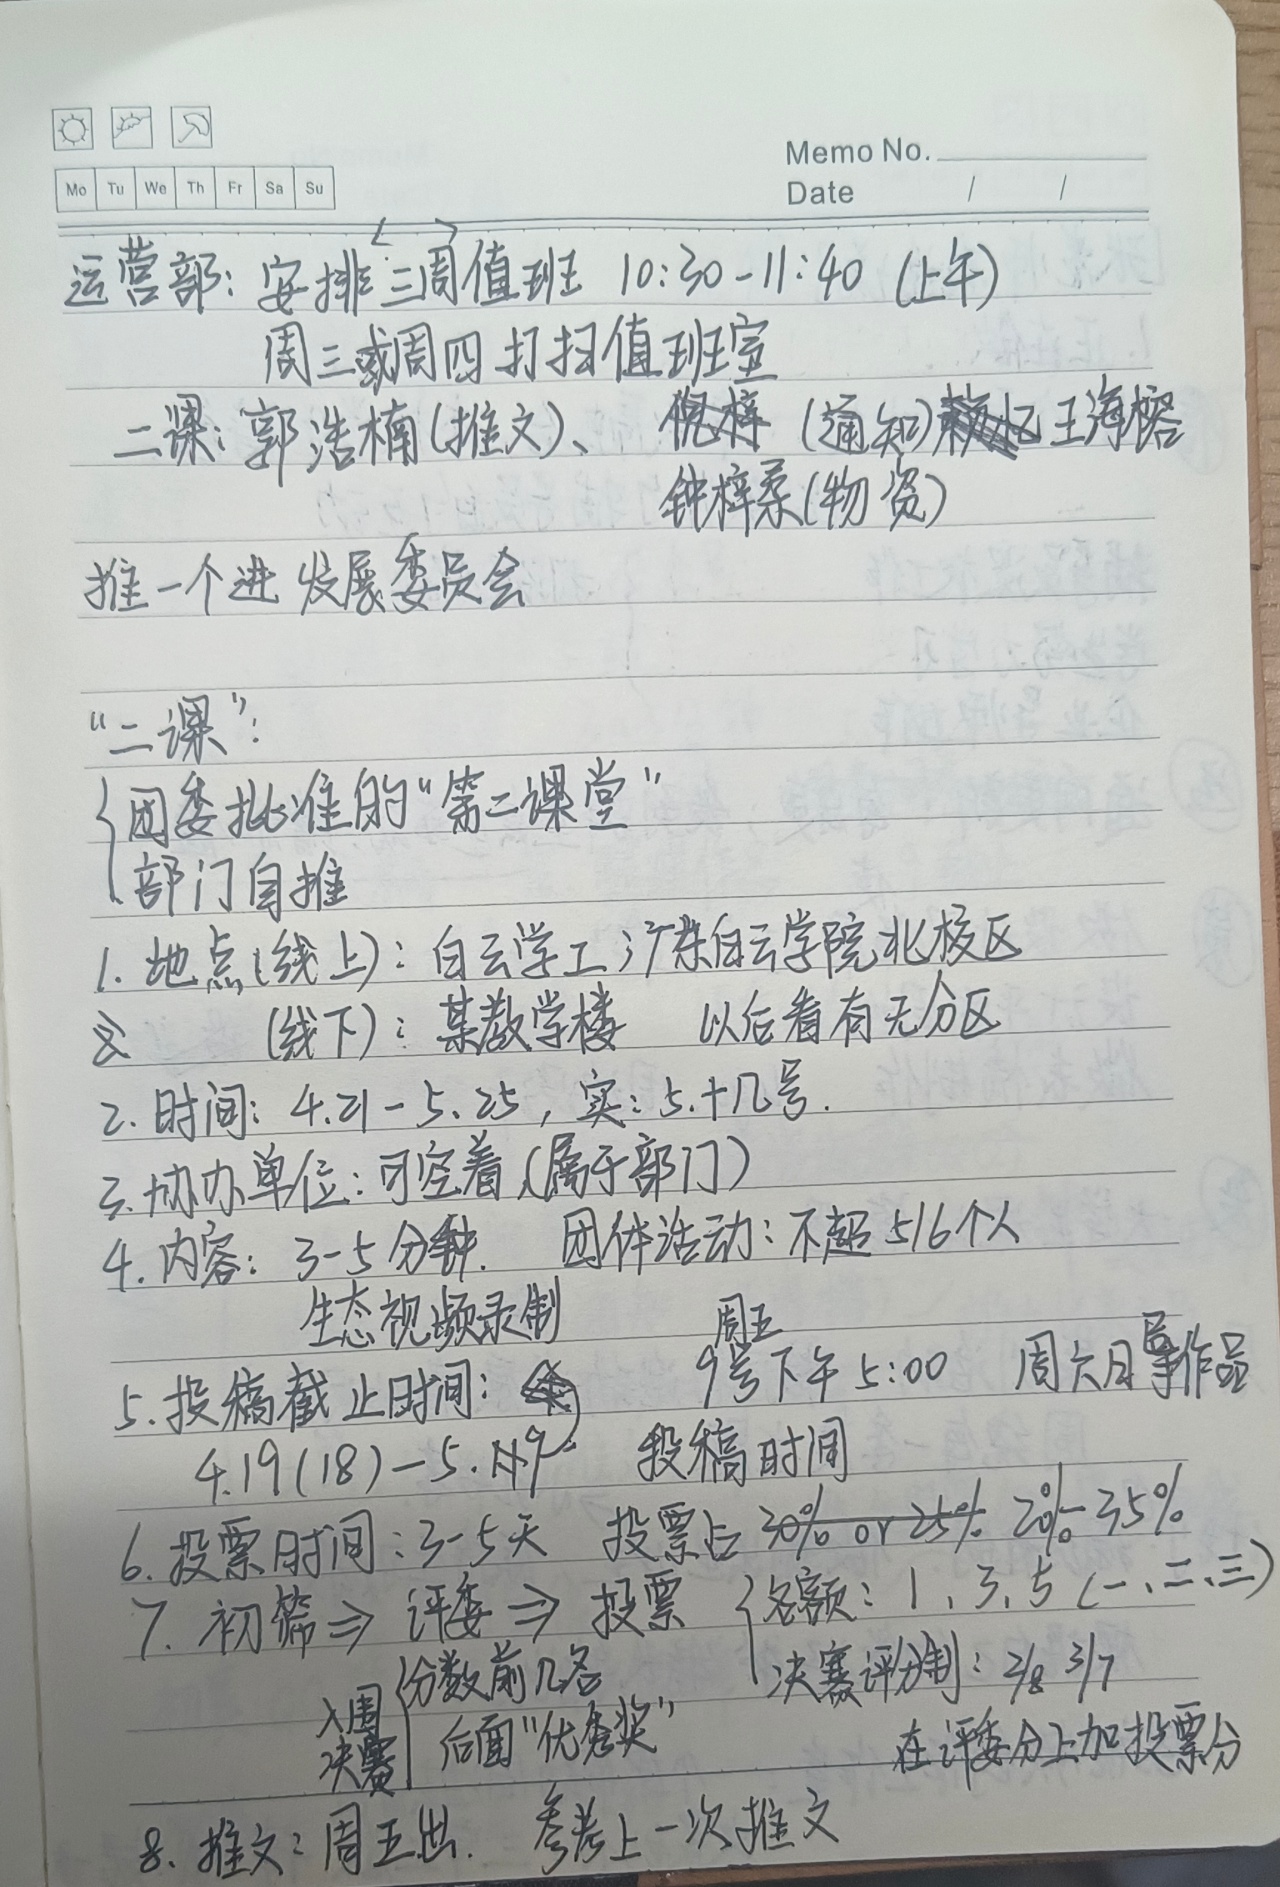 Memo No.
Mo Tu We Th Fr Sa Su
Date / /
运营部：安排三周值班 10:30-11:40 (上午)
周三或周四打扫值班室
二课：郭浩楠(推文)、倪梓(通知) 王海榕
钟梓柔(物资)
推一个进 发展委员会
“二课”：
团委批准的“第二课堂”
部门自推
1. 地点(线上)：白云学工；广东白云学院北校区
(线下)：某教学楼 以后看有无分区
2. 时间：4.21-5.25，实：5.十几号.
3. 协办单位：可空着(属于部门)
4. 内容：3-5分钟. 团体活动：不超5/6个人
生态视频录制
周五
5. 投稿截止时间： 9号下午5:00 周六日 作品
4.19(18)-5.9 投稿时间
6. 投票时间：3-5天 投票占 30% or 25% 20%-35%
7. 初筛⇒评委⇒投票 名额：1、3、5(一、二、三)
分数前几名 决赛评分制：2/8 3/7
入围
决赛 后面“优秀奖” 在评委分上加投票分
8. 推文：周五出. 参考上一次推文